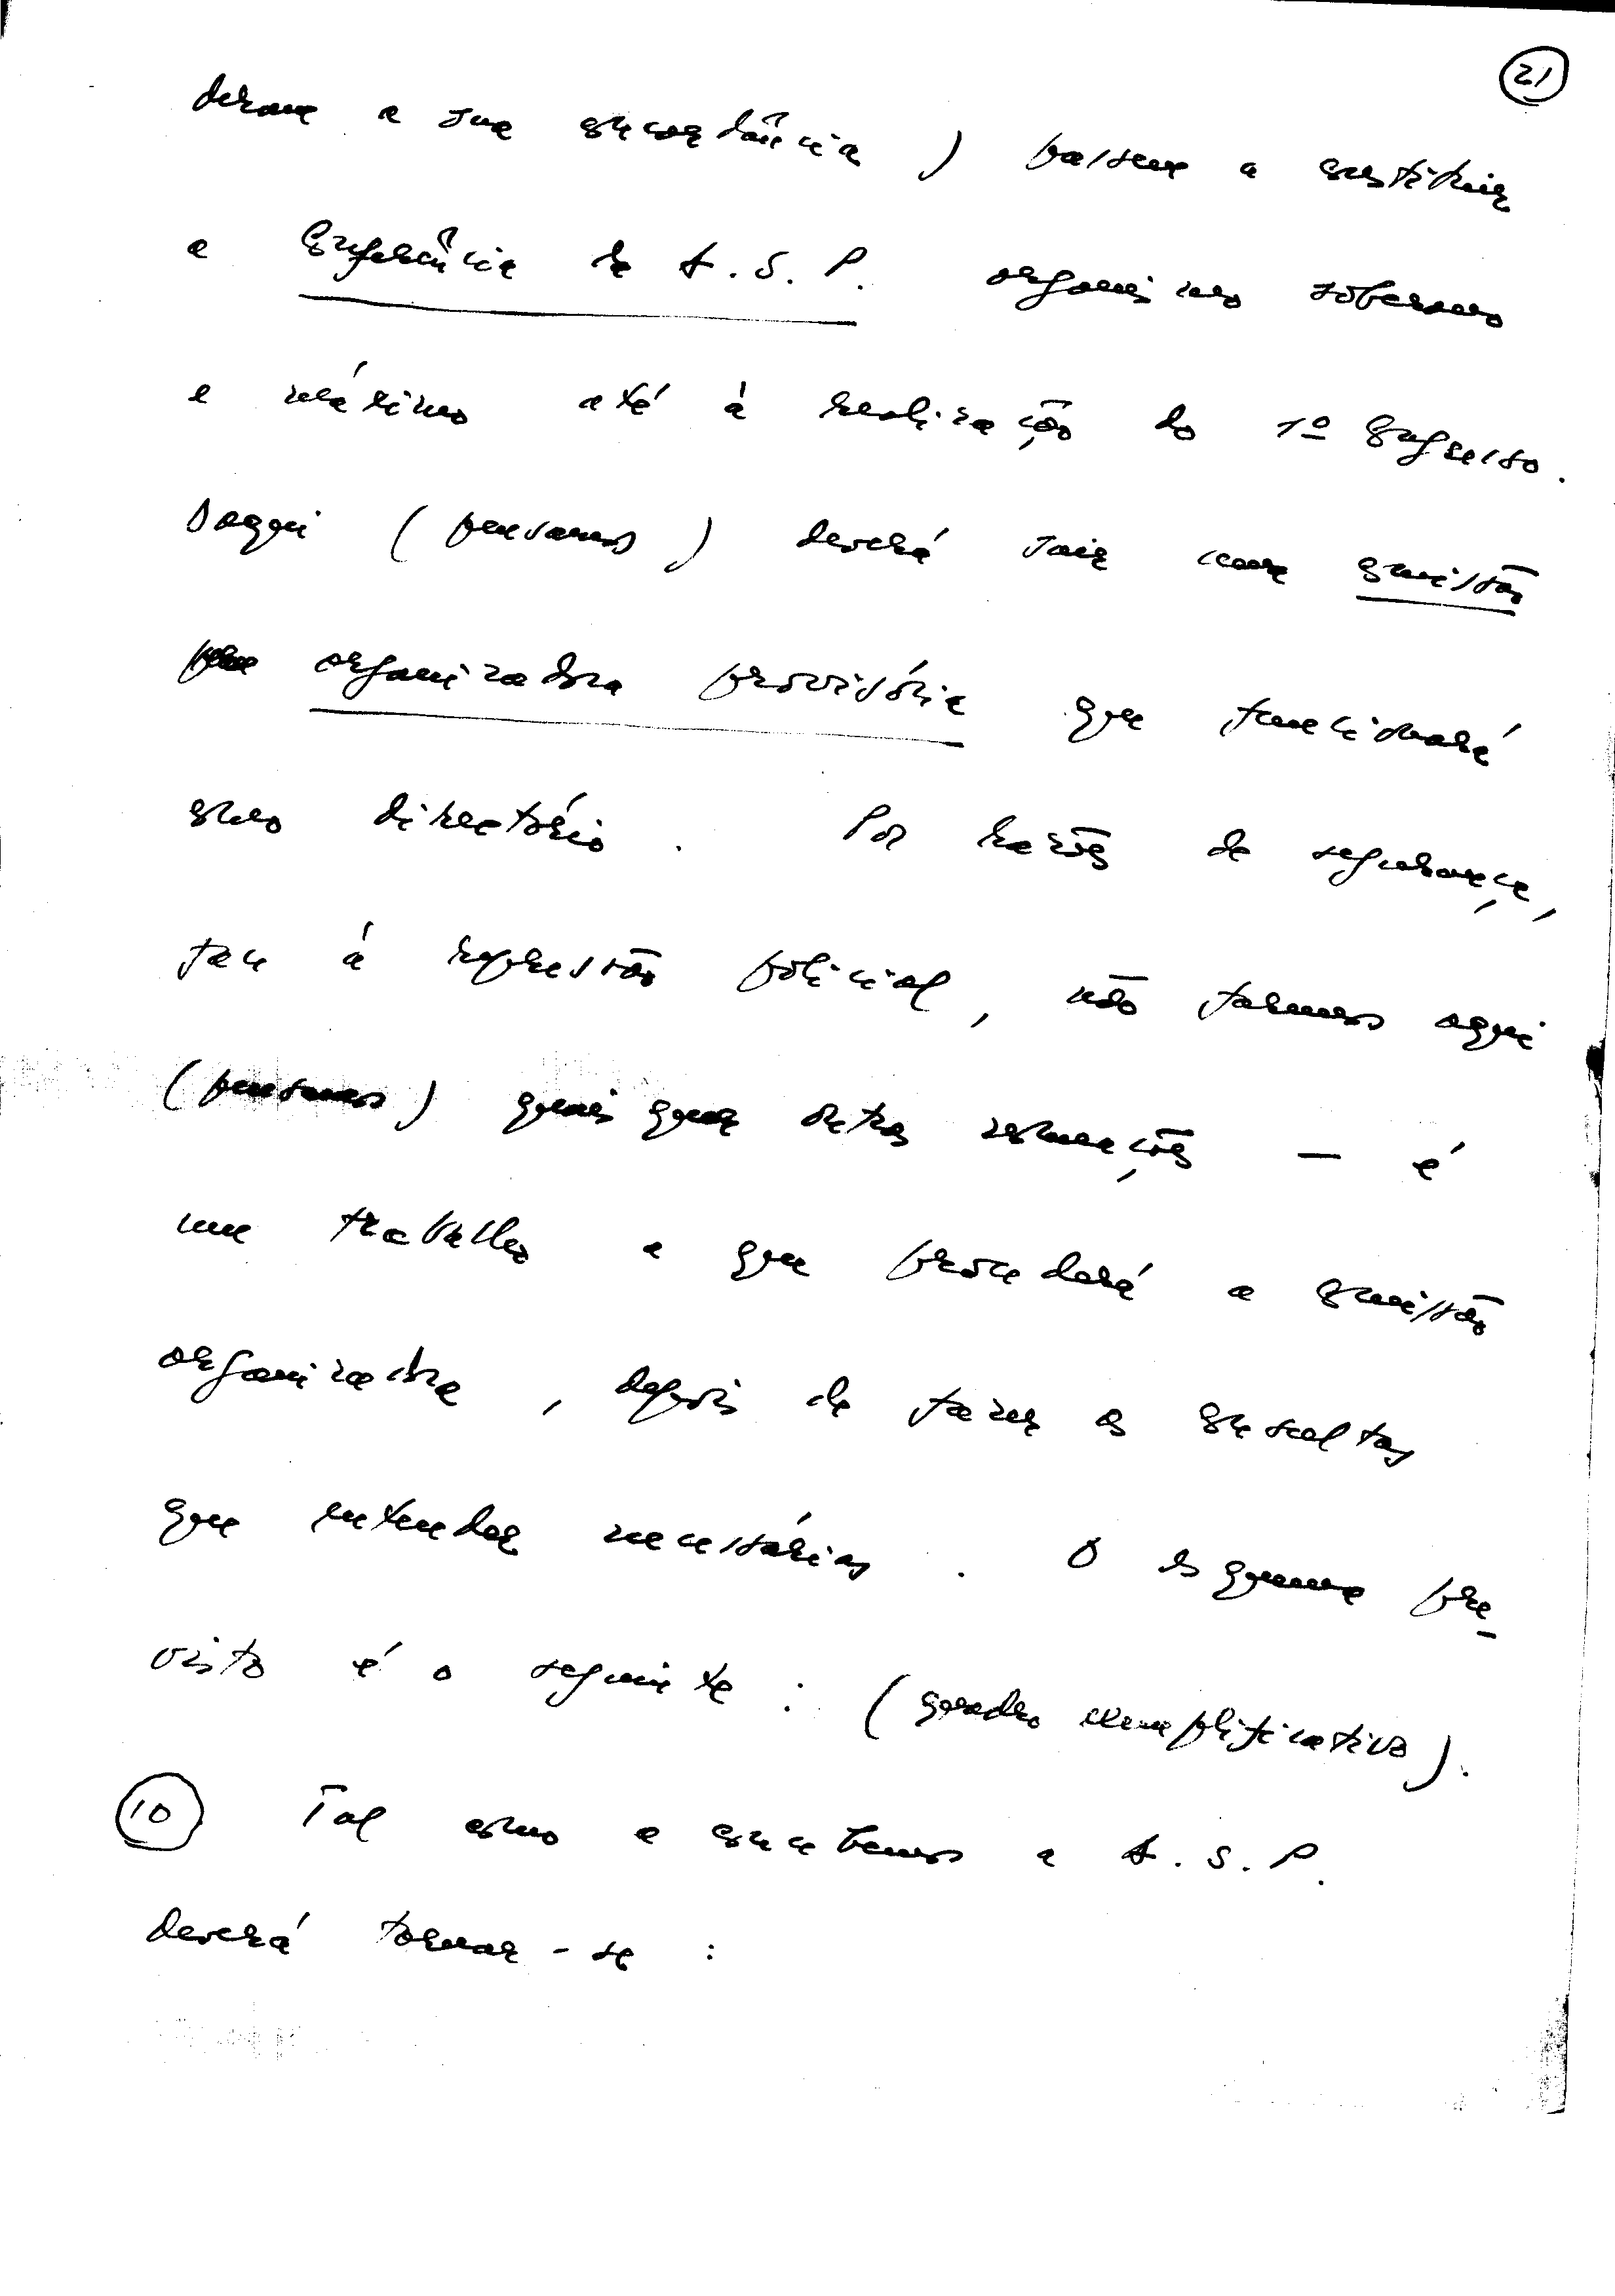 21
deram a sua concordância) passem a constituir
a Conferência da A.S.P. organismo soberano
e máximo até à realização do 1º Congresso.
Daqui (pensamos) deverá sair uma comissão
organizadora provisória que funcionará
como directório. Por razões de segurança,
face à repressão policial, não faremos aqui
(pensamos) quaisquer outras nomeações — é
um trabalho a que procederá a comissão
organizadora, depois de fazer as consultas
que entender necessárias. O esquema pre-
visto é o seguinte: (quadro exemplificativo).
10 Tal como a concebemos a A.S.P.
deverá tornar-se: